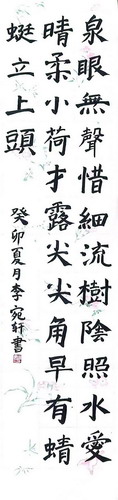 泉眼無聲惜細流樹陰照水愛
晴柔小荷才露尖尖角早有蜻
蜓立上頭
癸卯夏月李宛軒書